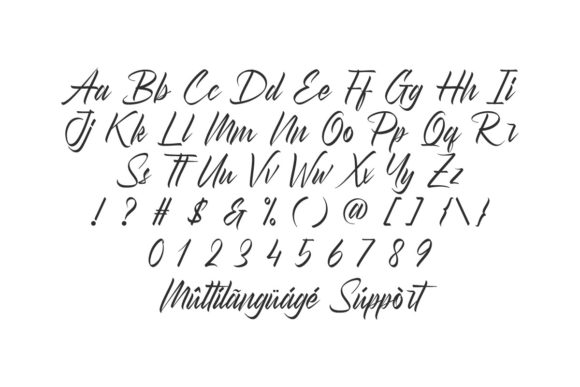 Aa Bb Cc Dd Ee Ff Gg Hh Ii
Jj Kk Ll Mm Nn Oo Pp Qq Rr
Ss Tt Uu Vv Ww Xx Yy Zz
! ? # $ & % ( ) @ [ ] { \ }
0 1 2 3 4 5 6 7 8 9
Mûltilãngüágé Súppòrt